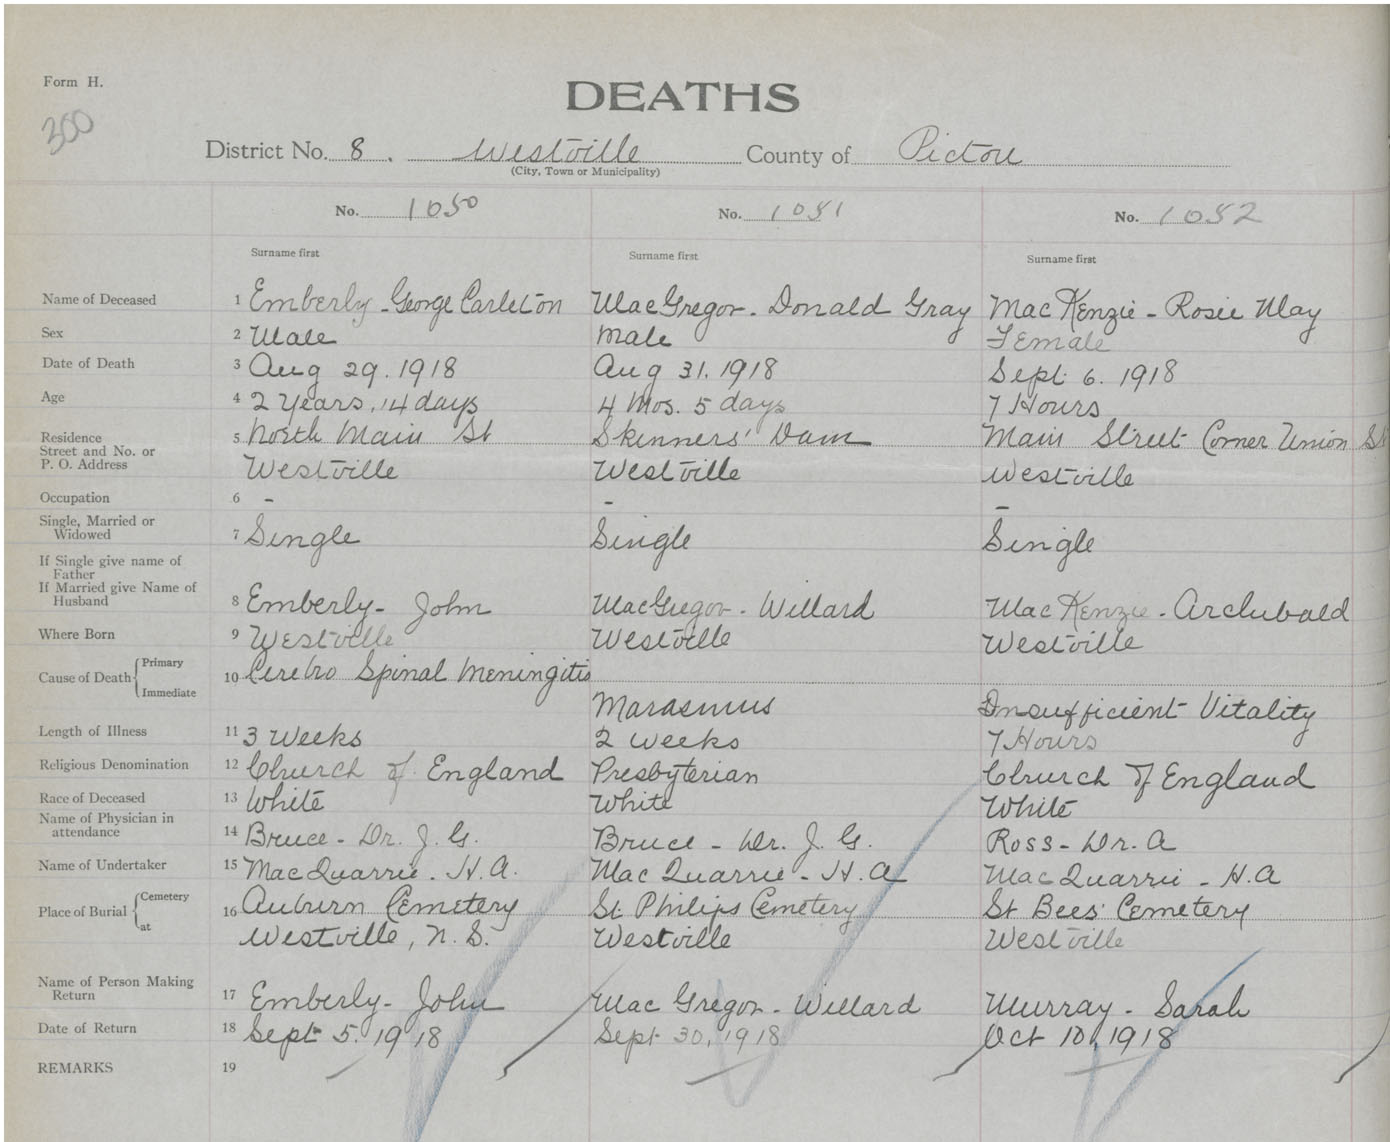 Form H.
300
DEATHS
District No. 8. Westville County of Pictou
(City, Town or Municipality)
No. 1050 No. 1051 No. 1052
Surname first Surname first Surname first
Name of Deceased 1 Emberly - George Carleton MacGregor - Donald Gray MacKenzie - Rosie May
Sex 2 Male Male Female
Date of Death 3 Aug 29. 1918 Aug 31. 1918 Sept 6. 1918
Age 4 2 Years, 14 days 4 Mos. 5 days 7 Hours
Residence 5 North Main St Skinners' Dam Main Street Corner Union St
Street and No. or
P. O. Address Westville Westville Westville
Occupation 6 - - -
Single, Married or
Widowed 7 Single Single Single
If Single give name of
Father
If Married give Name of
Husband 8 Emberly - John MacGregor - Willard MacKenzie - Archibald
Where Born 9 Westville Westville Westville
Cause of Death { Primary 10 Cerebro Spinal Meningitis
Immediate Marasmus Insufficient Vitality
Length of Illness 11 3 Weeks 2 Weeks 7 Hours
Religious Denomination 12 Church of England Presbyterian Church of England
Race of Deceased 13 White White White
Name of Physician in
attendance 14 Bruce - Dr. J. G. Bruce - Dr. J. G. Ross - Dr. A
Name of Undertaker 15 MacQuarrie - H. A. MacQuarrie - H. A MacQuarrie - H. A
Place of Burial { Cemetery 16 Auburn Cemetery St Philips Cemetery St Bees' Cemetery
at Westville, N. S. Westville Westville
Name of Person Making
Return 17 Emberly - John MacGregor - Willard Murray - Sarah
Date of Return 18 Sept 5. 1918 Sept 30, 1918 Oct 10, 1918
REMARKS 19